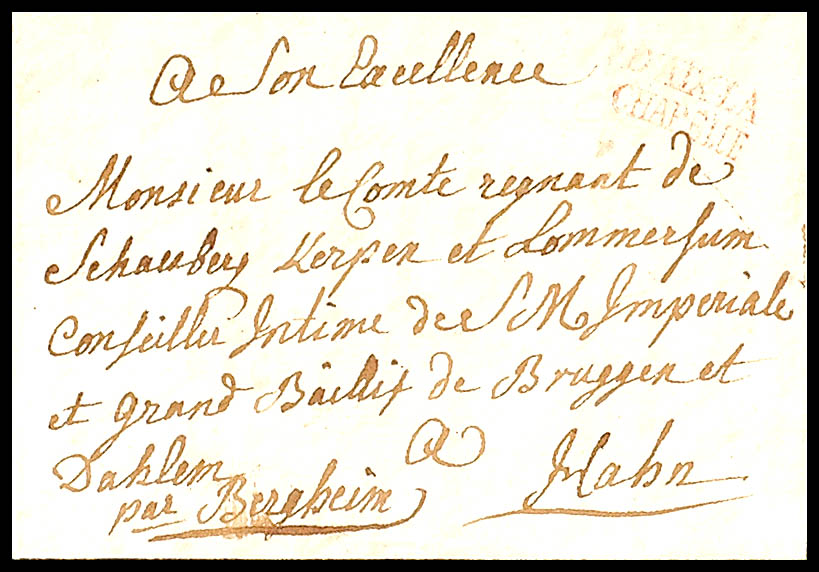 A Son Excellence
D'AIX-LA
CHAPELLE
Monsieur le Comte regnant de
Schaesberg Kerpen et Lommersum
Conseiller Intime de S M Imperiale
et grand Bailly de Bruggen et
Dahlem A Hahn
par Bergheim